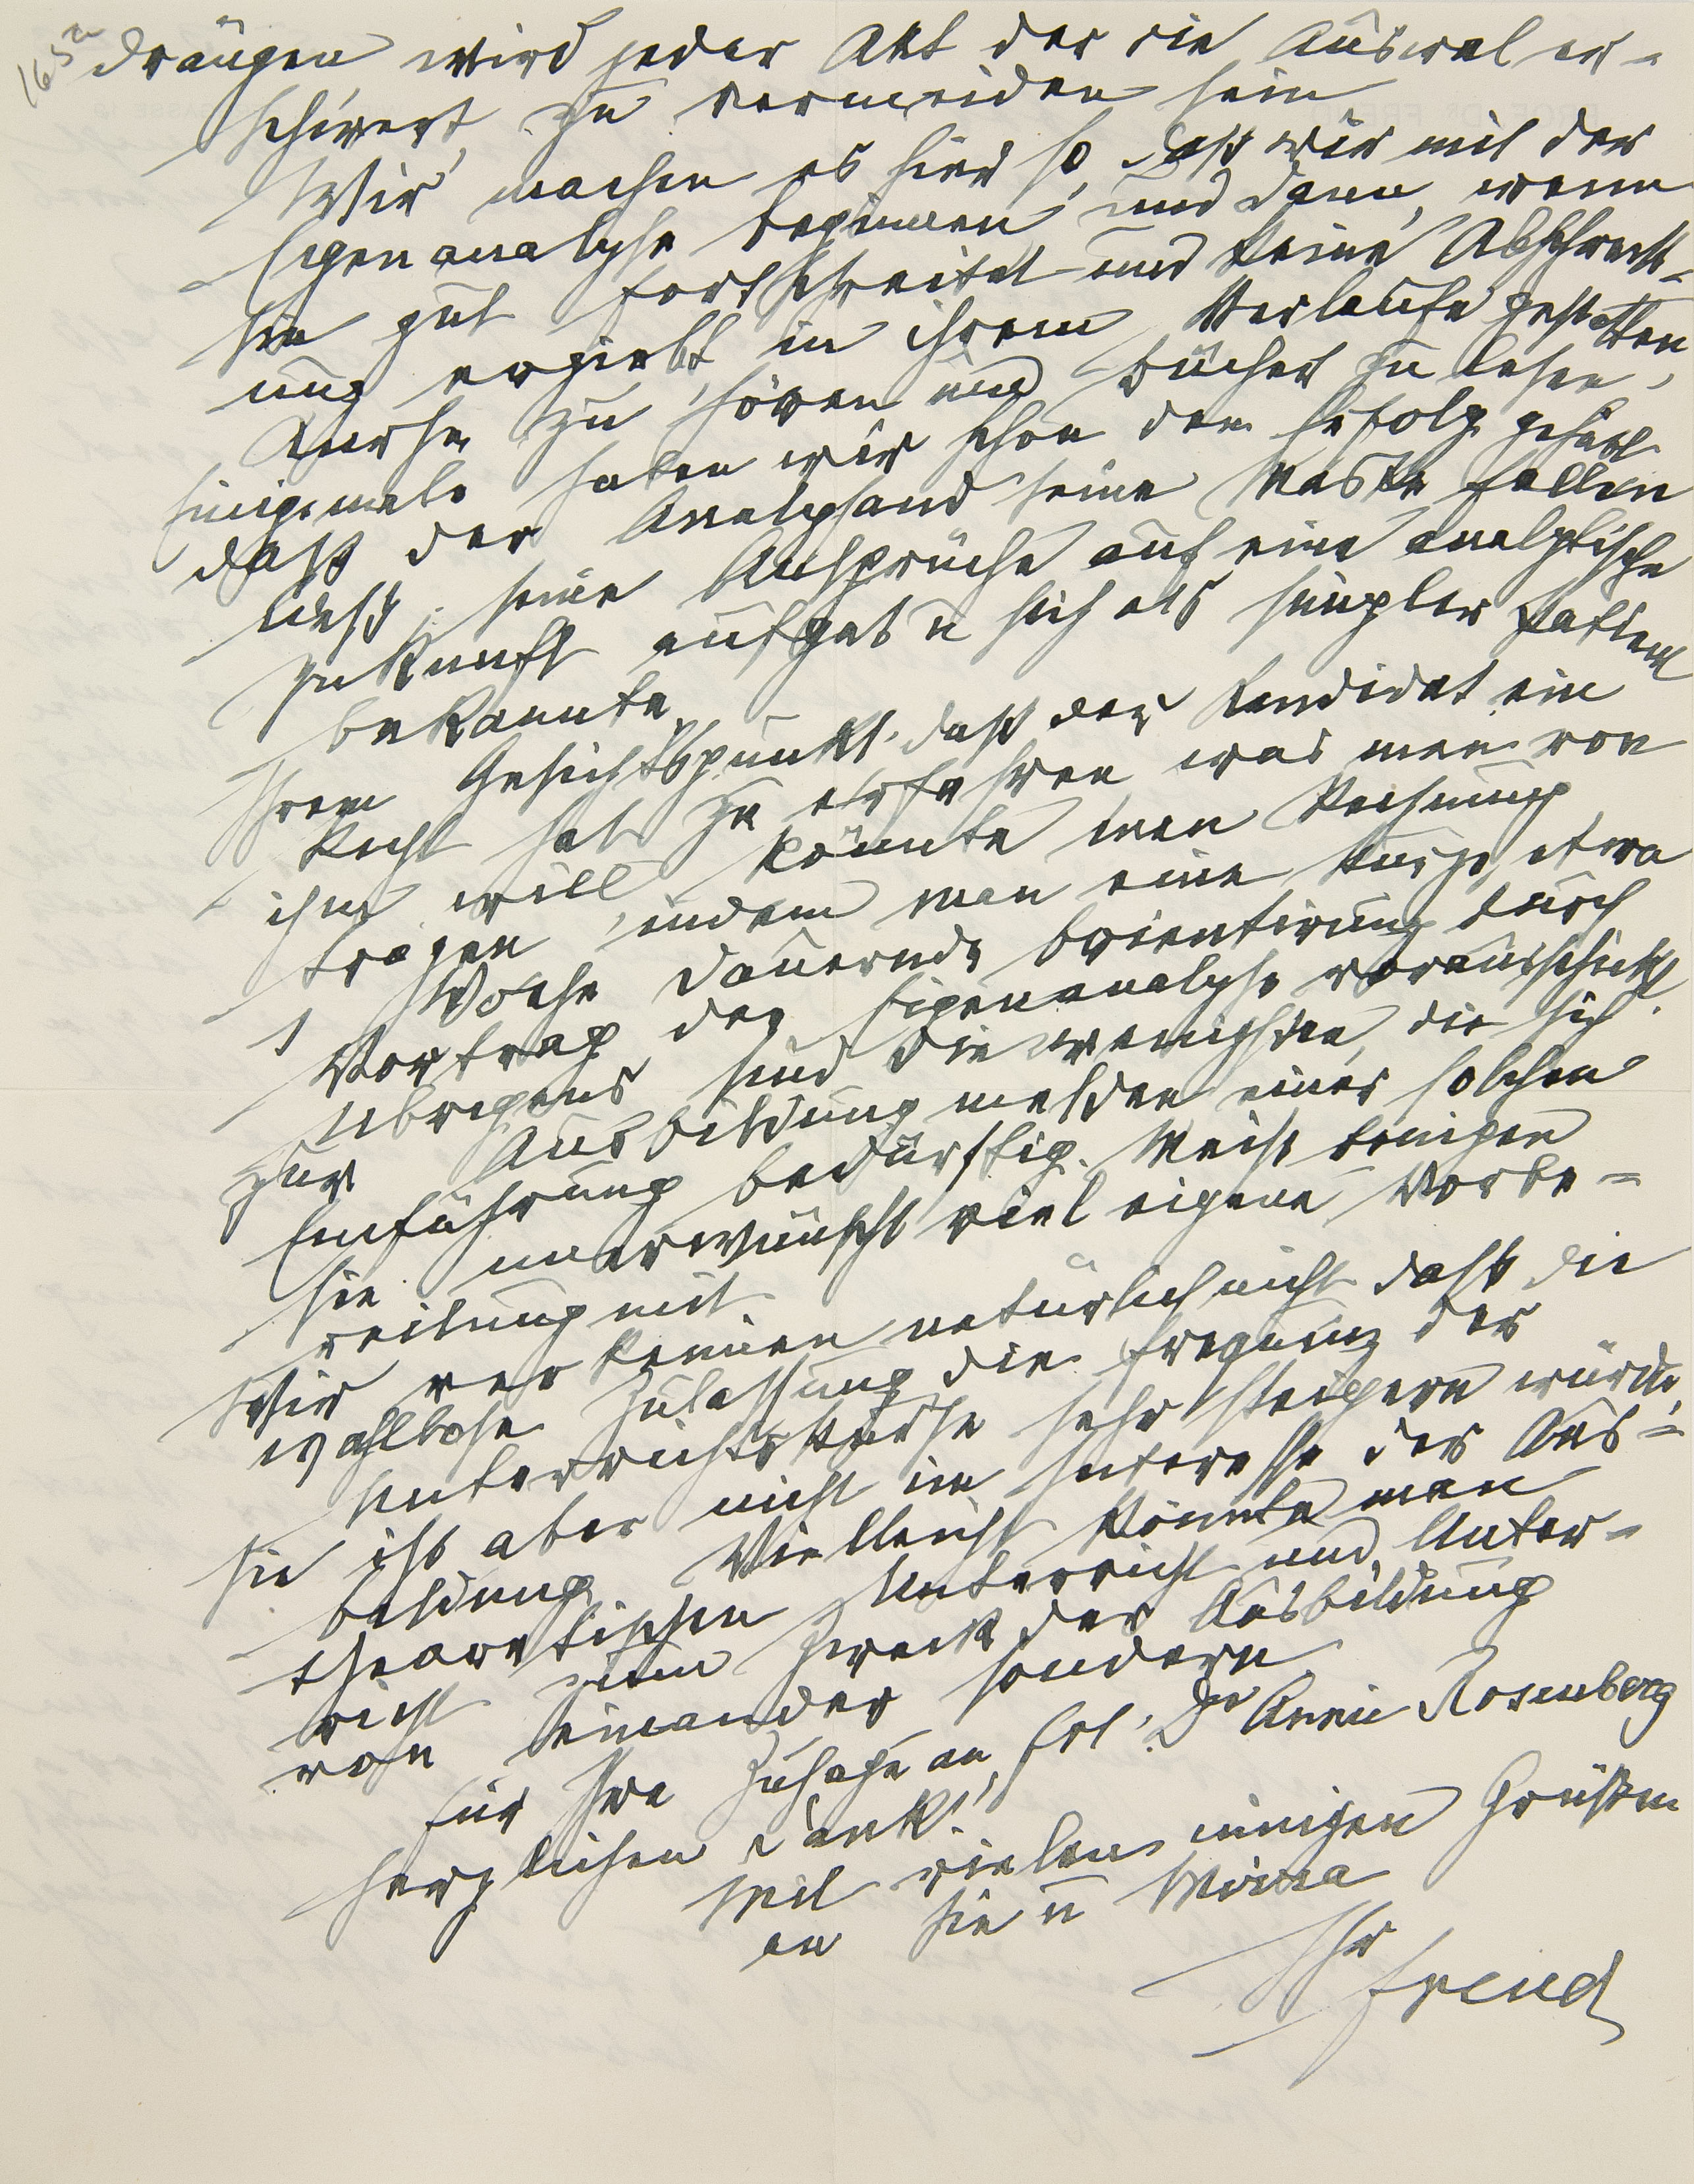 165a
drängen wird jeder Akt der die Auswal er-
schwert, zu vermeiden sein.
Wir machen es hier so, daß wir mit der
Eigenanalyse beginnen und dann, wenn
sie gut fortschreitet und keine Abschreck-
ung ergiebt in ihrem Verlaufe gestatten
Kurse zu hören und Bücher zu lesen.
Einigemale haben wir schon den Erfolg gehabt
daß der Analysand seine Maske fallen
ließ, seine Ansprüche auf eine analytische
Zukunft aufgab u sich als simpler Patient
bekannte.
Ihrem Gesichtspunkt, daß der Kandidat ein
Recht hab zu erfahren was man von
ihm will könnte man Rechnung
tragen, indem man eine kurze, etwa
1 Woche dauernde Orientirung durch
Vortrag der Eigenanalyse vorausschickt.
Übrigens sind die wenigsten, die sich
zur Ausbildung melden einer solchen
Einführung bedürftig. Meist bringen
sie unerwünscht viel eigene Vorbe-
reitung mit.
Wir verkennen natürlich nicht daß die
wahllose Zulassung die Frequenz der
Unterrichtskurse sehr steigern würde,
sie ist aber nicht im Interesse der Aus-
bildung. Vielleicht könnte man
theoretischen Unterricht und Unter-
richt zum Zweck der Ausbildung
von einander sondern.
Für Ihre Zusage an Frl. Dr Annie Rosenberg
herzlichen Dank!
Mit vielen innigen Grüßen
an Sie u Mirra
Ihr
Freud